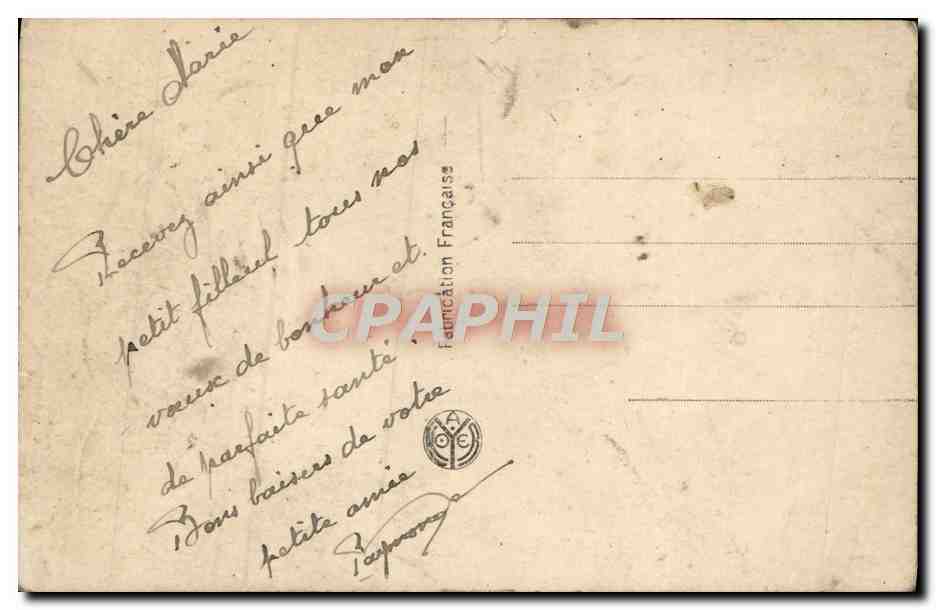 Chère Marie
Recevez ainsi que mon
petit filleul tous nos
vœux de bonheur et
de parfaite santé.
Bons baisers de votre
petite amie
Raymonde
Fabrication Française
CPAPHIL